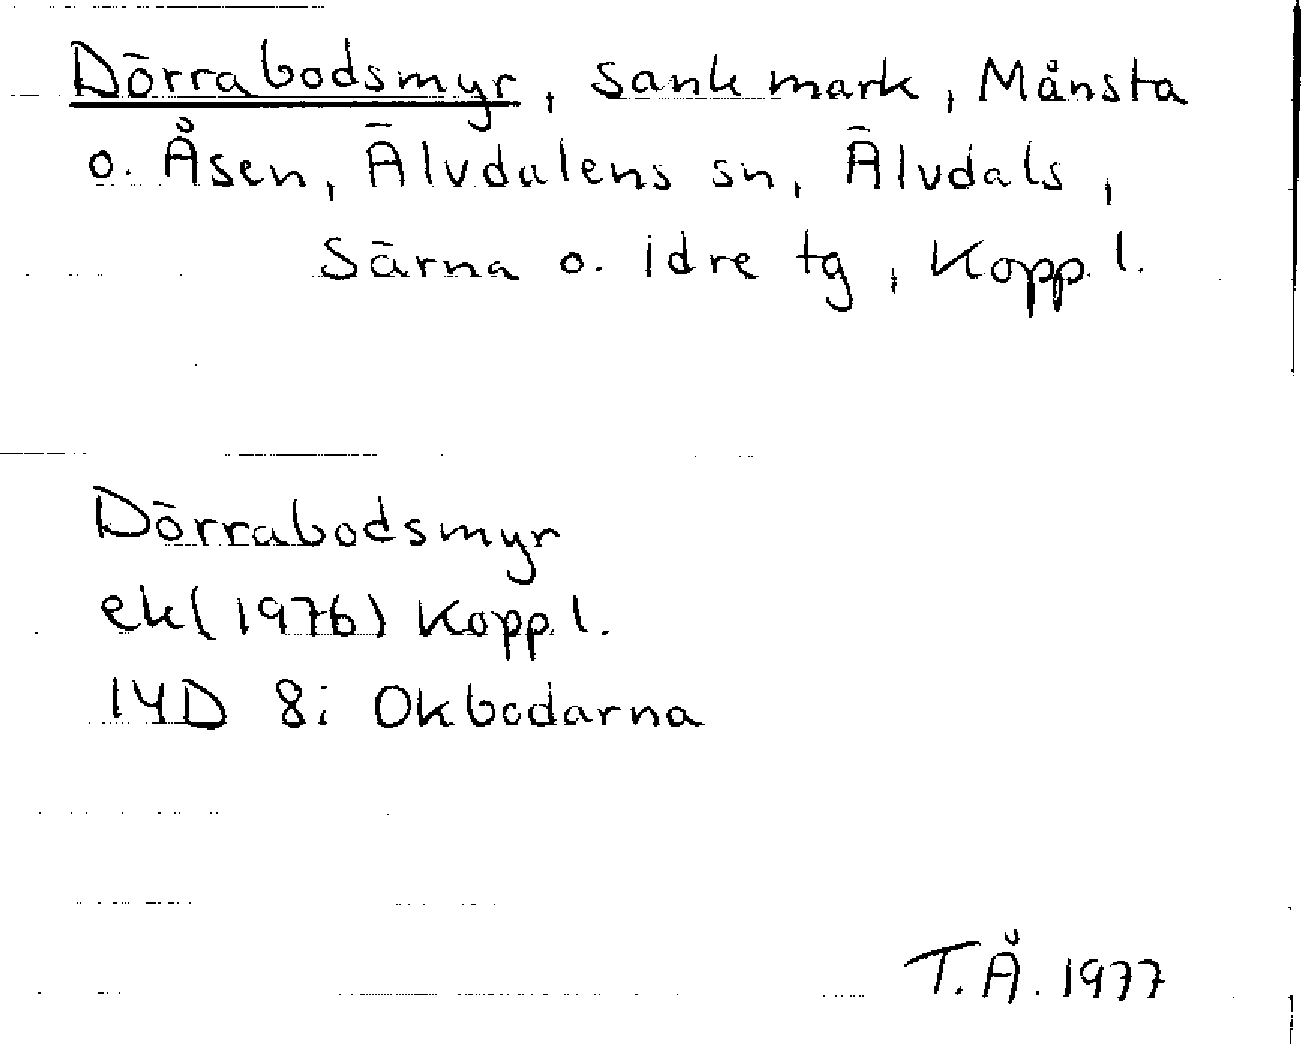 Dörrabodsmyr, sank mark, Månsta
o. Åsen, Älvdalens sn, Älvdals,
Särna o. Idre tg, Kopp. l.
Dörrabodsmyr
ek (1976) Kopp. l.
14D 8i Okbodarna
T.Å. 1977